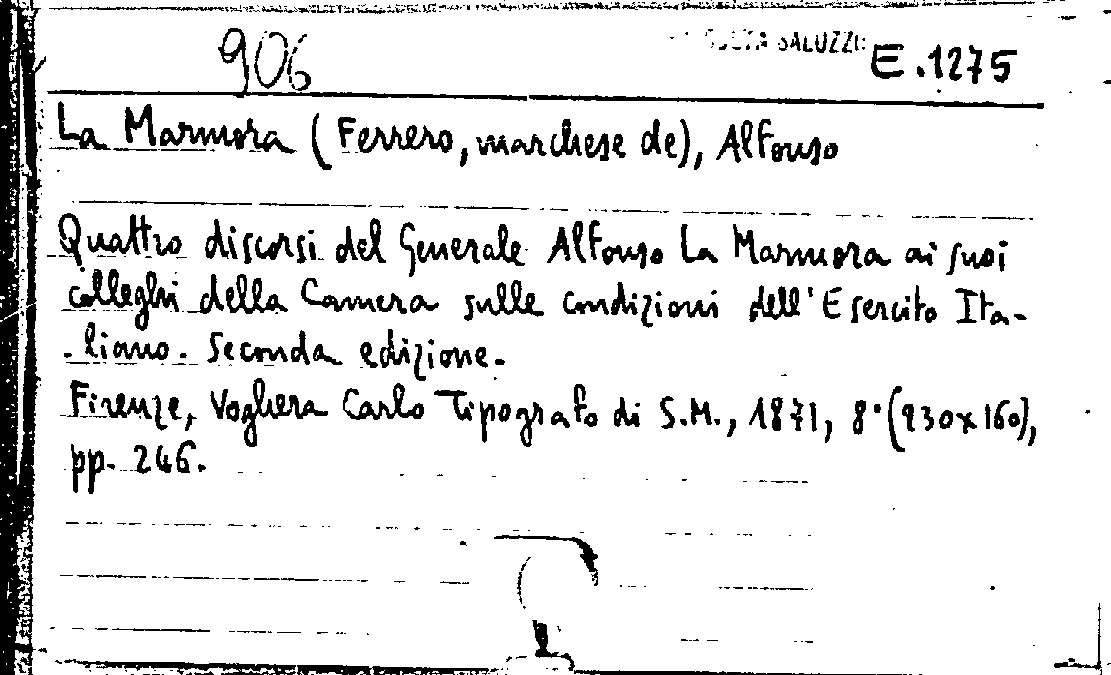 906 SALUZZI E.1275
La Marmora (Ferrero, marchese de), Alfonso
Quattro discorsi del Generale Alfonso La Marmora ai suoi
colleghi della Camera sulle condizioni dell'Esercito Ita-
-liano. Seconda edizione.
Firenze, Voghera Carlo Tipografo di S.M., 1871, 8°(230x160),
pp. 246.